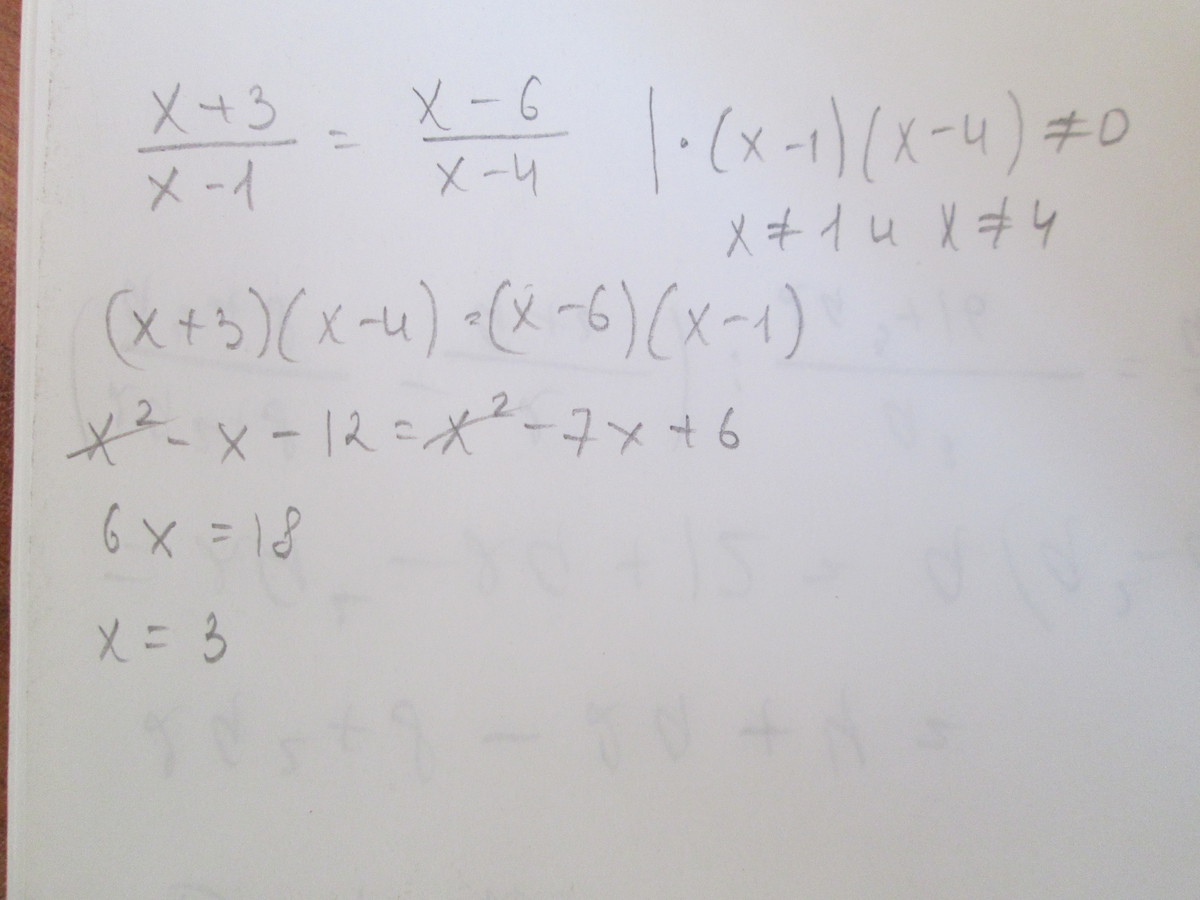 x+3/x-1 = x-6/x-4 | · (x-1)(x-4) ≠ 0
x ≠ 1 и x ≠ 4
(x+3)(x-4) = (x-6)(x-1)
x² - x - 12 = x² - 7x + 6
6x = 18
x = 3